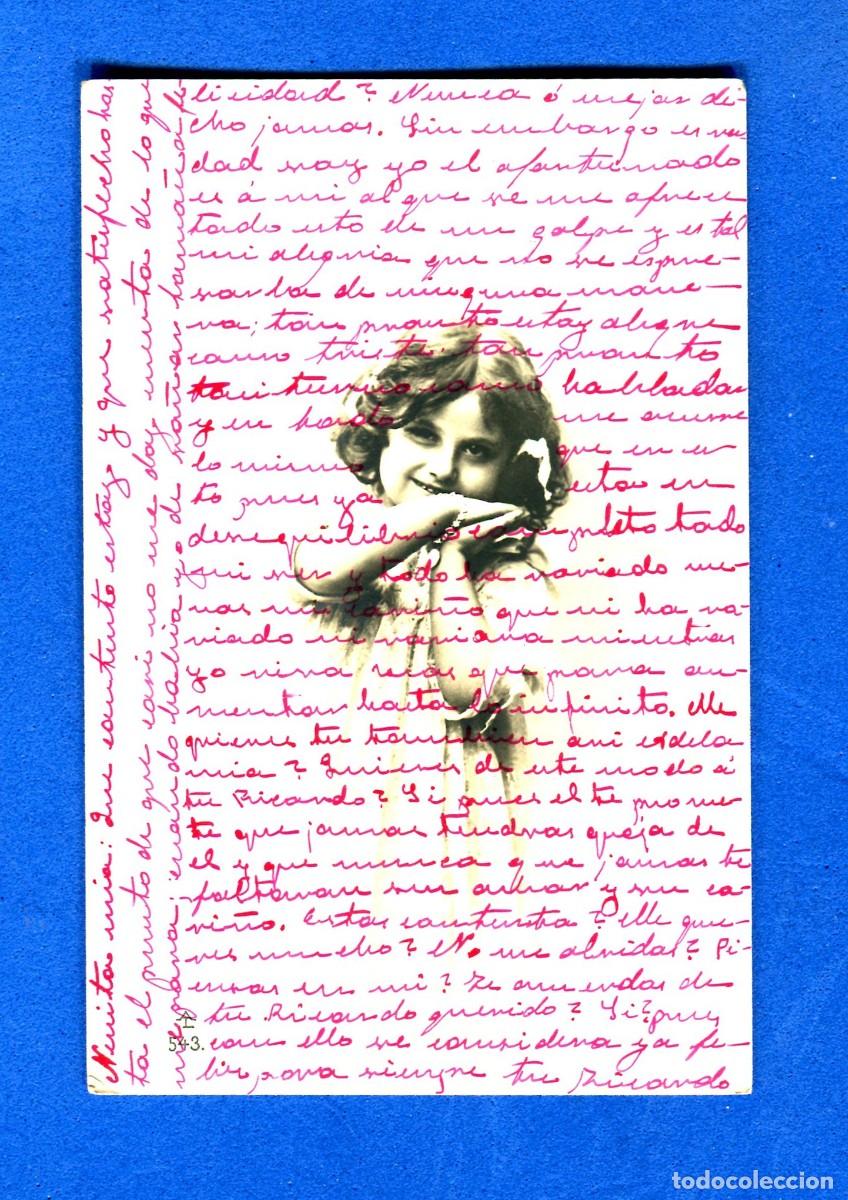 Nenita mia: Que contento estoy y que satisfecho has
ta el punto de que casi no me doy cuenta de lo que
me pasa; cuando habia yo de soñar tamaña fe
licidad? Nunca ó mejor di-
cho jamas. Sin embargo es ver
dad soy yo el afortunado
es á mi al que se me
esto de un golpe y es tal
mi alegria que no se espre-
sarla de ninguna mane-
ra; tan pronto estoy alegre
como triste tan pronto
taciturno como hablador
y en todo me ocurre
lo mismo que en es
to pues ya esta en
desequilibrio completo todo
mi ser y todo ha variado me-
nos mi cariño que ni ha va-
riado ni variara mientras
yo viva mas que para au-
mentar hasta lo infinito. Me
quieres tu tambien asi
mia? Quieres de este modo á
tu Ricardo? Si pues el te prome
te que jamas tendras queja de
el y que nunca que jamas te
faltaran su amor y su ca-
riño. Estas contenta? Me quie-
res mucho? No me olvidas? Pi-
ensas en mi? Te acuerdas de
tu Ricardo querido? Si? pues
con ello se considera ya fe-
liz para siempre tu Ricardo
543.
todocoleccion